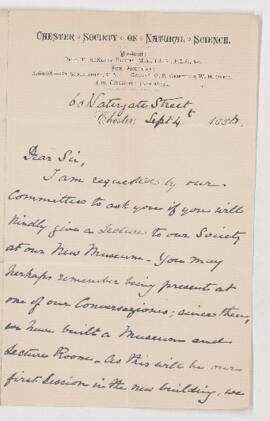 CHESTER SOCIETY OF NATURAL SCIENCE.
60 Watergate Street
Chester, Sept 4th 1886
Dear Sir,
I am requested by our
Committee to ask you if you will
kindly give a Lecture to our Society
at our New Museum. You may
perhaps remember being present at
one of our Conversaziones; since then,
we have built a Museum and
Lecture Room. As this will be our
first Session in the new building, we